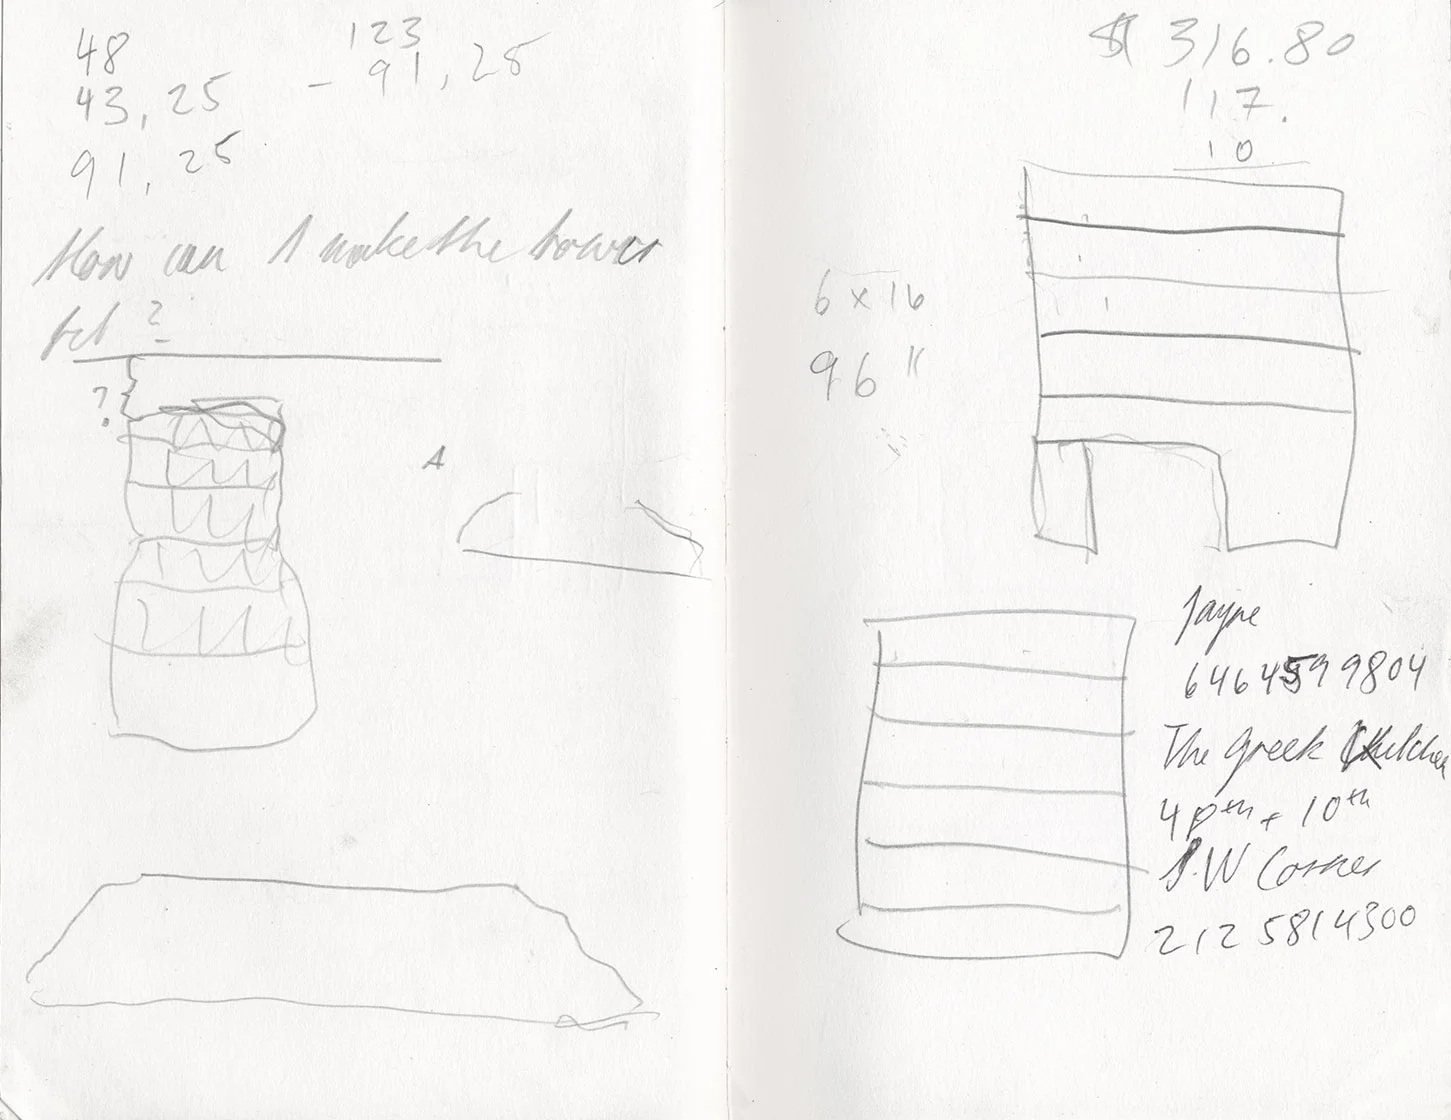 48
43,25
91,25
123
- 91,25
How can I make the tower
?
?
A
$ 316.80
117.
10
6 x 16
96"
Jayne
6464599804
The Greek Kitchen
4 th + 10th
S.W Corner
212 5814300